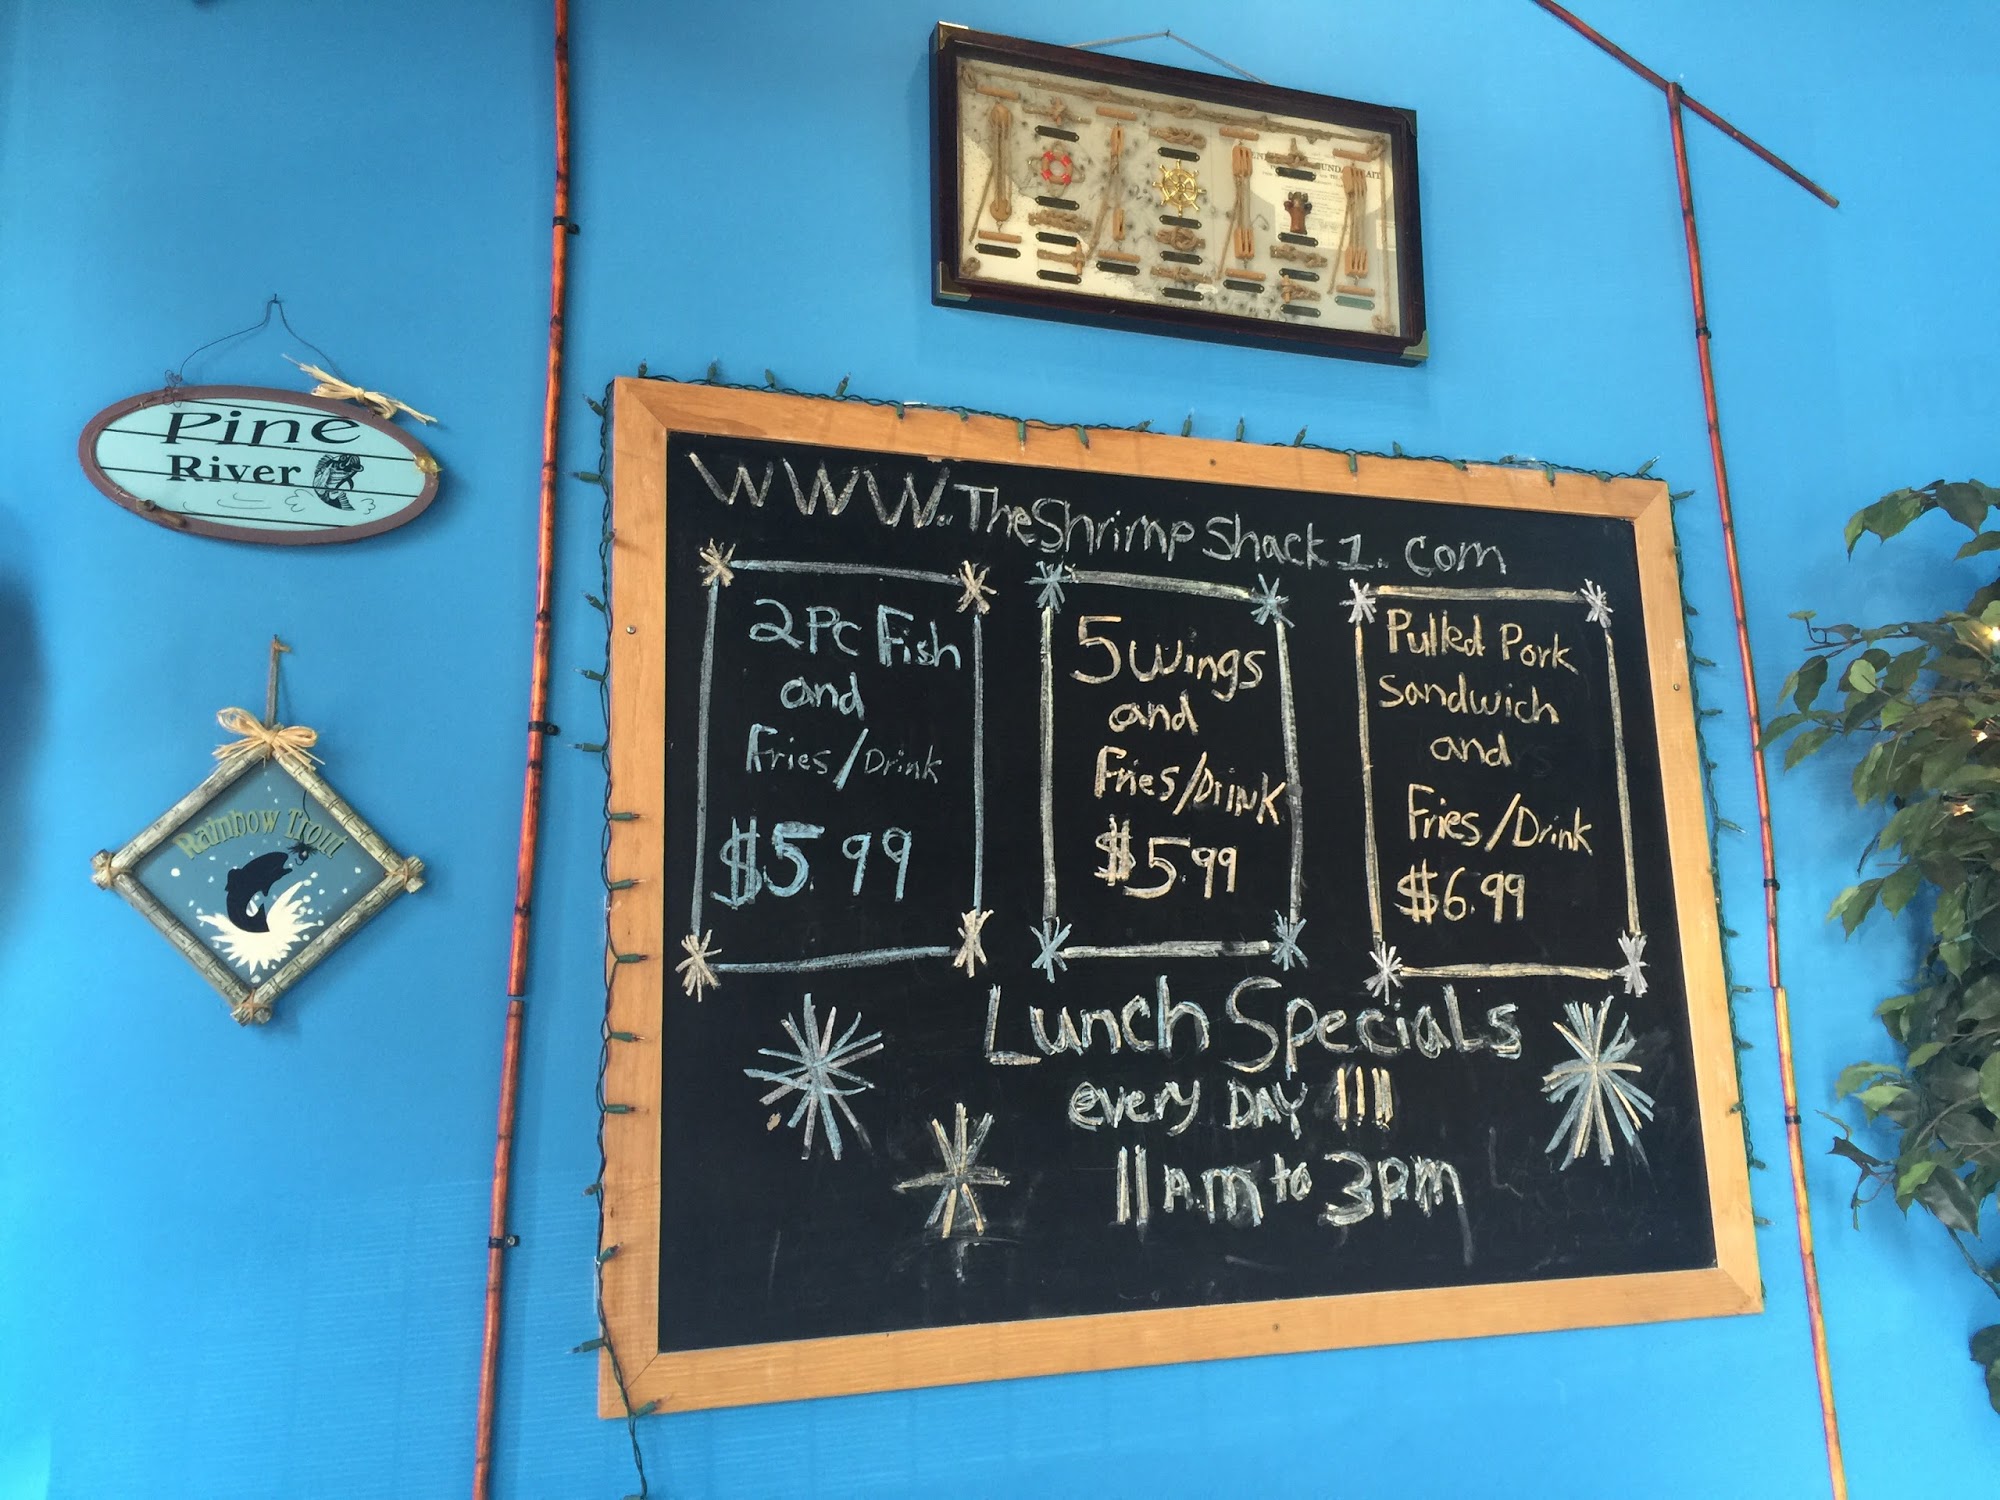 Pine
River
Rainbow Trout
WWW.TheShrimpShack1.com
2Pc Fish
and
Fries/Drink
$5.99
5 Wings
and
Fries/Drink
$5.99
Pulled Pork
Sandwich
and
Fries/Drink
$6.99
Lunch Specials
every DAY !!!!
11am to 3pm